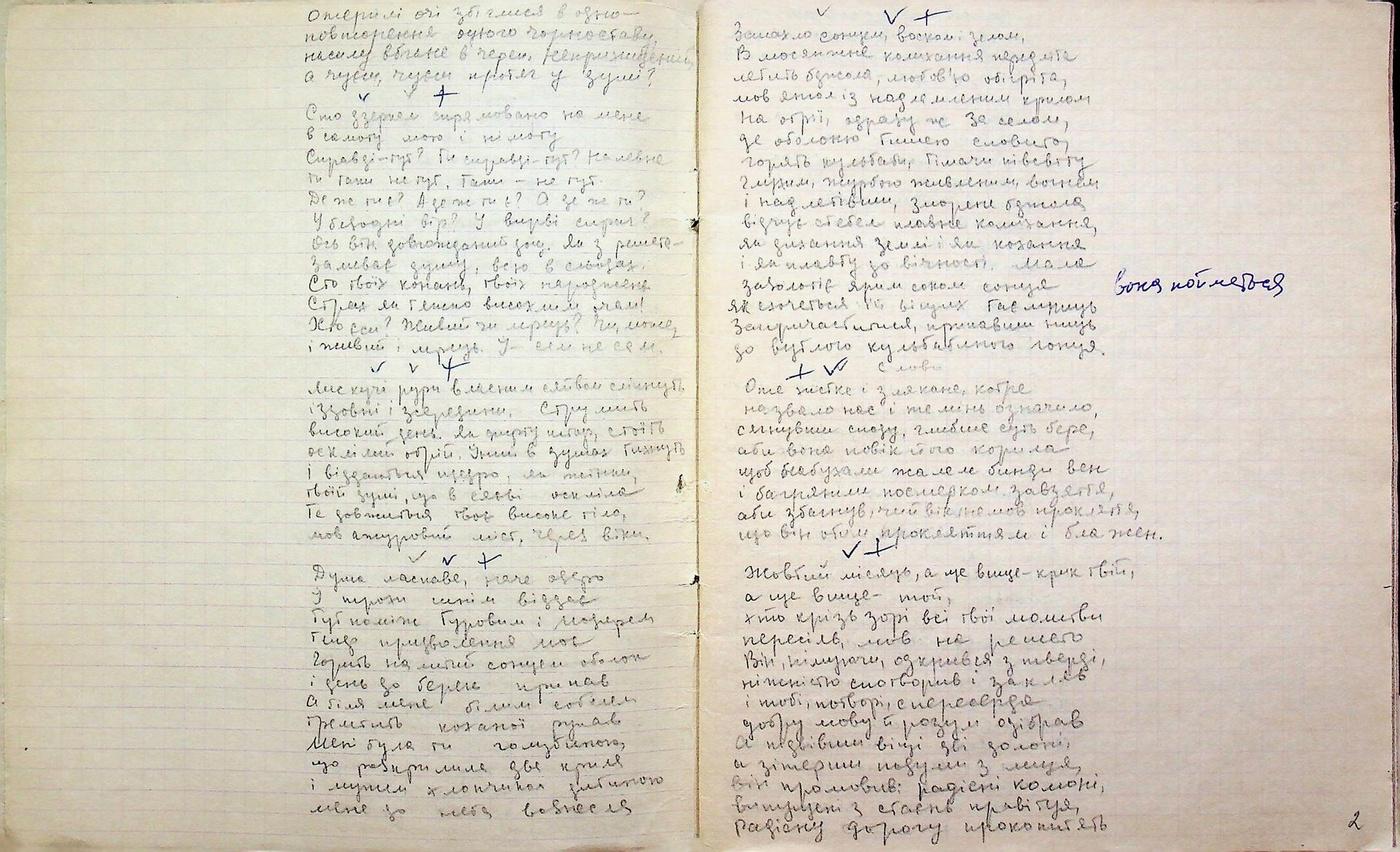 Отерплі очі збіглися в одно—
повторення одного чорноставу,
насилу вбгане в череп, неприхищений,
а чуєш, чуєш протяг у душі?
Сто дзеркал спрямовано на мене
в самоту мою і німоту
Справді-тут? Ти справді-тут? Напевне
ти таки не тут. Таки — не тут.
Де ж ти є? А де ж ти є? А де ж ти?
У безодні вір? У вирві
Ось він довгожданий дощ. Як з решета—
Заливає душу, всю в сльозах.
Сто твоїх конань, твоїх народжень
Страх як тяжко висохлим очам!
Хто єси? Живий чи мрець? Чи, може,
і живий і мрець. І — сам не сам.
Лискучі рури власним сяйвом сліпнуть
іззовні і зсередини. Струмить
високий день. стоїть
оскліли обрій. в душах тихнуть
і віддаються щедро, як жінки,
твоїй душі, що в сяєві оскліла
Те довжиться твоє високе тіло,
мов ажуровий міст, через віки.
Душа ласкава, наче озеро
У трохи синім віддає
Тут поміж Туровим і Мозирем
Гніздо призволення моє
Горить налитий сонцем оболок
і день до берега припав
А біля мене білим соболем
тремтить коханої рукав
Мені була ти голубиною,
що розкрилила два крила
і мужем хлопчика
мене до неба вознесла
Запахло сонцем, воском і зелом,
В мосянжне колихання передліта
летить бджола, любов'ю обігріта,
мов янгол із надламленим крилом
На обрії, одразу ж за селом,
де оболоню тишею сповито,
горять кульбаби, тімачи півсвіту
глухим, журбою живленим, вогнем
і надлетівши, зморена бджола
відчує стебел плавне колихання,
як дихання землі і як кохання
і як плавбу до вічності. Мала
заволодіє ярим соком сонця вона поймається
як схочеться їй віщих таємниць
Запричаститися, припавши ниць
до вутлого кульбабиного гонця.
Слово
Оте жистке і злякане, котре
назвало нас і темінь означило,
сягнувши споду, глибше суть бере,
аби вона повік його корила
щоб набухали жалем бинди вен
і багряним посмерком завзяття,
аби збагнув, чий він, немов прокляття,
що він отим прокляттям і блажен.
Жовтий місяць, а ще вище — крик твій,
а ще вище — той,
хто крізь зорі всі твої молитви
пересіяв, мов на решето
Він, німуючи, одкрився з тверді,
ніжністю спотворив і закляв
і тобі, потворі, спересердя
добру мову й розум одібрав
А підвівши віщі дві долоні,
а зітерши подуми з лиця,
він промовив: радісні комоні,
випущені з стаєнь правітця,
Радісну дорогу прокопитять
2